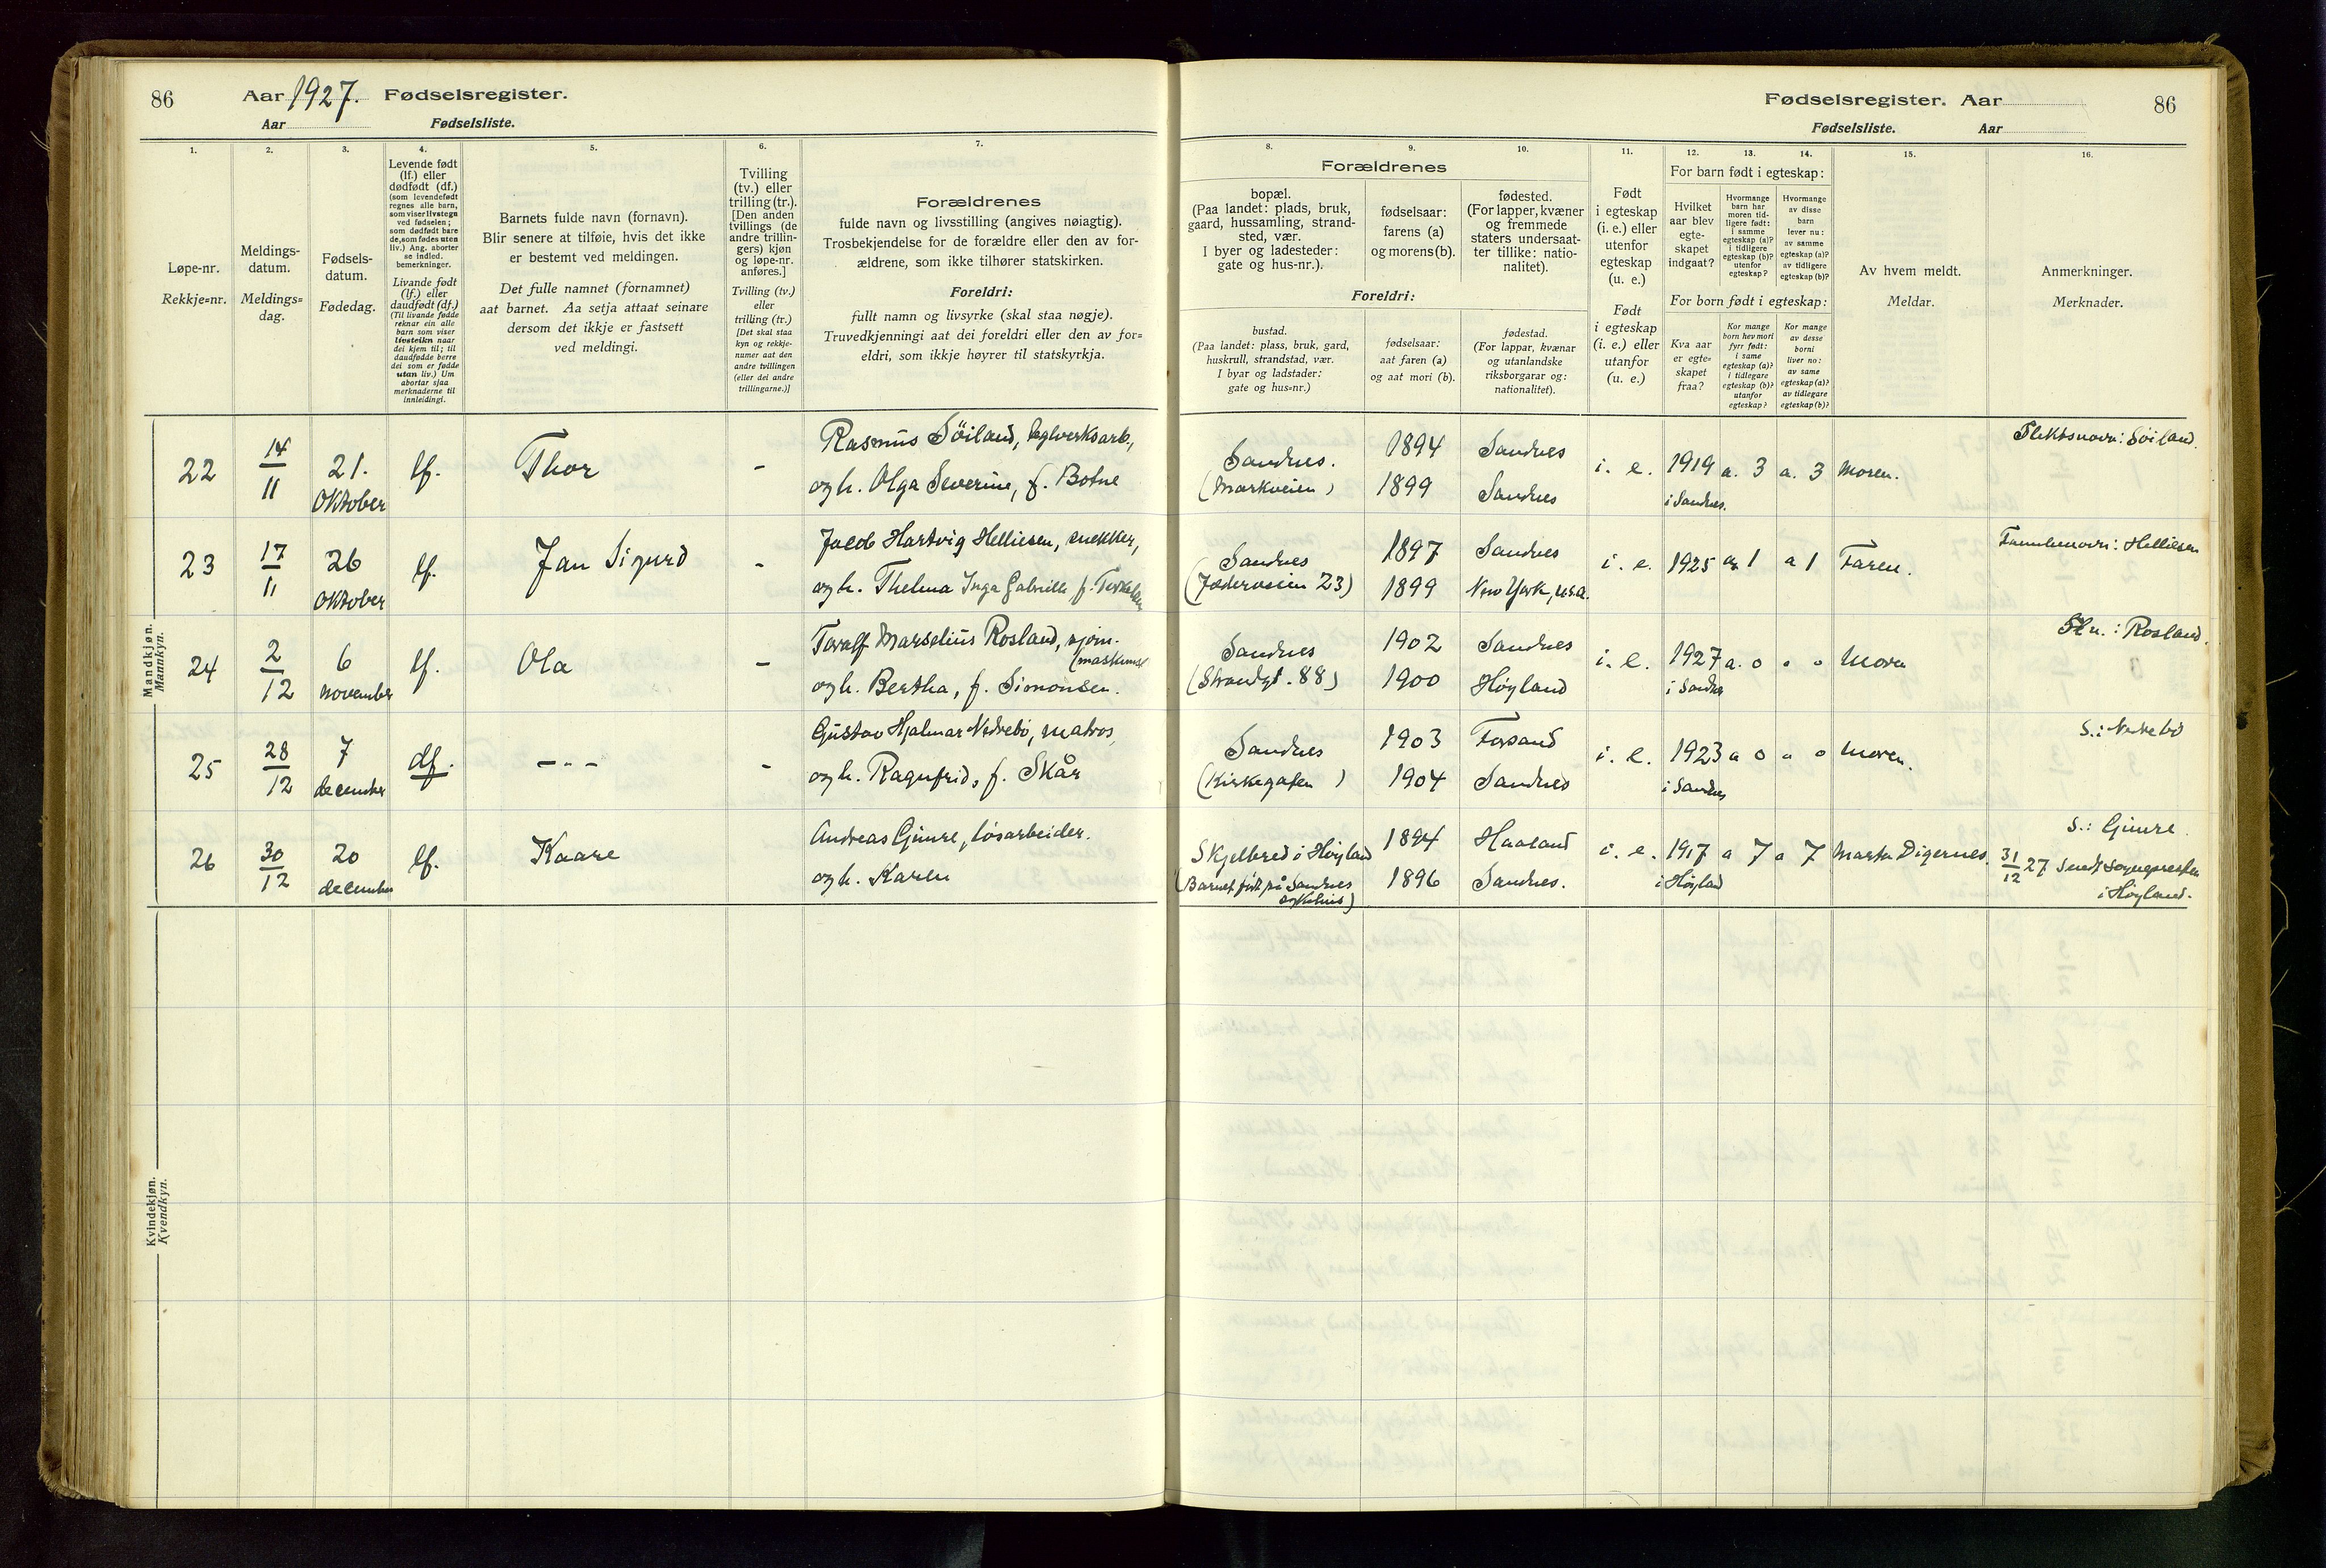 86
Aar 1927. Fødselsregister.
Aar
Fødselsliste.
1.
2.
3.
4.
5.
6.
7.
Løpe-nr.
Rekkje=nr.
Meldings-
datum.
Meldings=
dag.
Fødsels-
datum.
Fødedag.
Levende født
(lf.) eller
dødfødt (df.)
(som levendefødt
regnes alle barn,
som viser livstegn
ved fødselen;
som dødfødt bare
de, som fødes uten
liv.) Ang. aborter
se indled.
bemerkninger.
Livande født
(lf.) eller
daudfødt (df.)
(Til livande fødde
reknar ein alle
barn som viser
livsteikn naar
dei kjem til; til
daudfødde berre
dei som er fødde
utan liv.) Um
abortar sjaa
merknaderne til
innleidingi.
Barnets fulde navn (fornavn).
Blir senere at tilføie, hvis det ikke
er bestemt ved meldingen.
Det fulle namnet (fornamnet)
aat barnet. Aa setja attaat seinare
dersom det ikkje er fastsett
ved meldingi.
Tvilling
(tv.) eller
trilling (tr.).
[Den anden
tvillings (de
andre trillin-
gers) kjøn
og løpe-nr.
anføres.]
Tvilling (tv.)
eller
trilling (tr.)
[Det skal staa
kyn og rekkje-
numer aat den
andre tvillingen
(eller dei andre
trillingarne.)]
Forældrenes
fulde navn og livsstilling (angives nøiagtig).
Trosbekjendelse for de forældre eller den av for-
ældrene, som ikke tilhører statskirken.
Foreldri:
fullt namn og livsyrke (skal staa nøgje).
Truvedkjenningi aat dei foreldri eller den av for=
eldri, som ikkje høyrer til statskyrkja.
Mandkjøn.
Mannkyn.
22
14
11
21.
Oktober
lf.
Thor
-
Rasmus Söiland, teglverksarb.,
og h. Olga Severine, f. Botne
23
17
11
26
Oktober
lf.
Jan Sigurd
-
Jacob Hartvig Helliesen, snekker,
og h. Thelma Inga Gabrielle f.
24
2
12
6
november
lf.
Ola
-
Toralf Marselius Rosland,
og h. Bertha, f. Simonsen.
25
28
12
7
december
df.
---
-
Gustav Hjalmar Nedrebö, matros,
og h. Ragnfrid, f. Skår
26
30
12
20
december
lf.
Kaare
Andreas Gjimre, løsarbeider.
og h. Karen
Kvindekjøn.
Kvendkyn.
Fødselsregister. Aar
86
Fødselsliste.
Aar
8.
9.
10.
11.
12.
13.
14.
15.
16.
Forældrenes
bopæl.
(Paa landet: plads, bruk,
gaard, hussamling, strand-
sted, vær.
I byer og ladesteder:
gate og hus-nr.).
fødselsaar:
farens (a)
og morens (b).
fødested.
(For lapper, kvæner
og fremmede
staters undersaat-
ter tillike: natio-
nalitet).
Foreldri:
bustad.
(Paa landet: plass, bruk, gard,
huskrull, strandstad, vær.
I byar og ladstader:
gate og hus=nr.)
fødselsaar:
aat faren (a)
og aat mori (b).
fødestad.
(For lappar, kvænar
og utanlandske
riksborgarar og:
nationalitet).
Født
i egteskap
(i. e.) eller
utenfor
egteskap
(u. e.)
Født
i egteskap
(i. e.) eller
utanfor
(u. e.)
For barn født i egteskap:
Hvilket
aar blev
egte-
skapet
indgaat?
Hvormange
barn har
moren tid-
ligere født:
i samme
egteskap (a)?
i tidligere
egteskap (b)?
utenfor
egteskap?
Hvormange
av disse
barn
lever nu:
av samme
egteskap (a)?
av tidligere
egteskap (b)?
For born født i egteskap:
Kva aar
er egte=
skapet
fraa?
Kor mange
born hev mori
fyrr født:
i same
egteskap (a)?
i tidlegare
egteskap (b)?
utanfor
egteskap?
Kor mange
av desse
borni
liver no:
av same
egteskap (a)?
av tidlegare
egteskap (b)?
Av hvem meldt.
Meldar.
Anmerkninger.
Merknader.
Sandnes.
(Markveien )
1894
1899
Sandnes
Sandnes
i. e.
1919
i Sandnes.
a. 3
a. 3
Moren.
Slektsnavn: Söiland.
Sandnes
(Jæderveien 23)
1897
1899
Sandnes
New York, U.S.A.
i. e.
1925
a 1
a 1
Faren.
Familienavn: Helliesen
Sandnes
(Strandgt. 88)
1902
1900
Sandnes
Høyland
i. e.
1927
i Sandnes
a. 0
" 0
Moren
Sln.: Rosland.
Sandnes
(Kirkegaten )
1903
1904
Forsand
Sandnes
i. e.
1923
i Sandnes
a 0
" 0
Moren.
S.: Nedrebö
Skjelbred i Høyland
(Barnet født på Sandnes
sykehus)
1894
1896
Haaland
Sandnes.
i. e.
1917
i Høyland
a 7
a 7
Marta Digernes.
S.: Gjimre.
31
12 27 Sendt sognepresten
i Høyland.